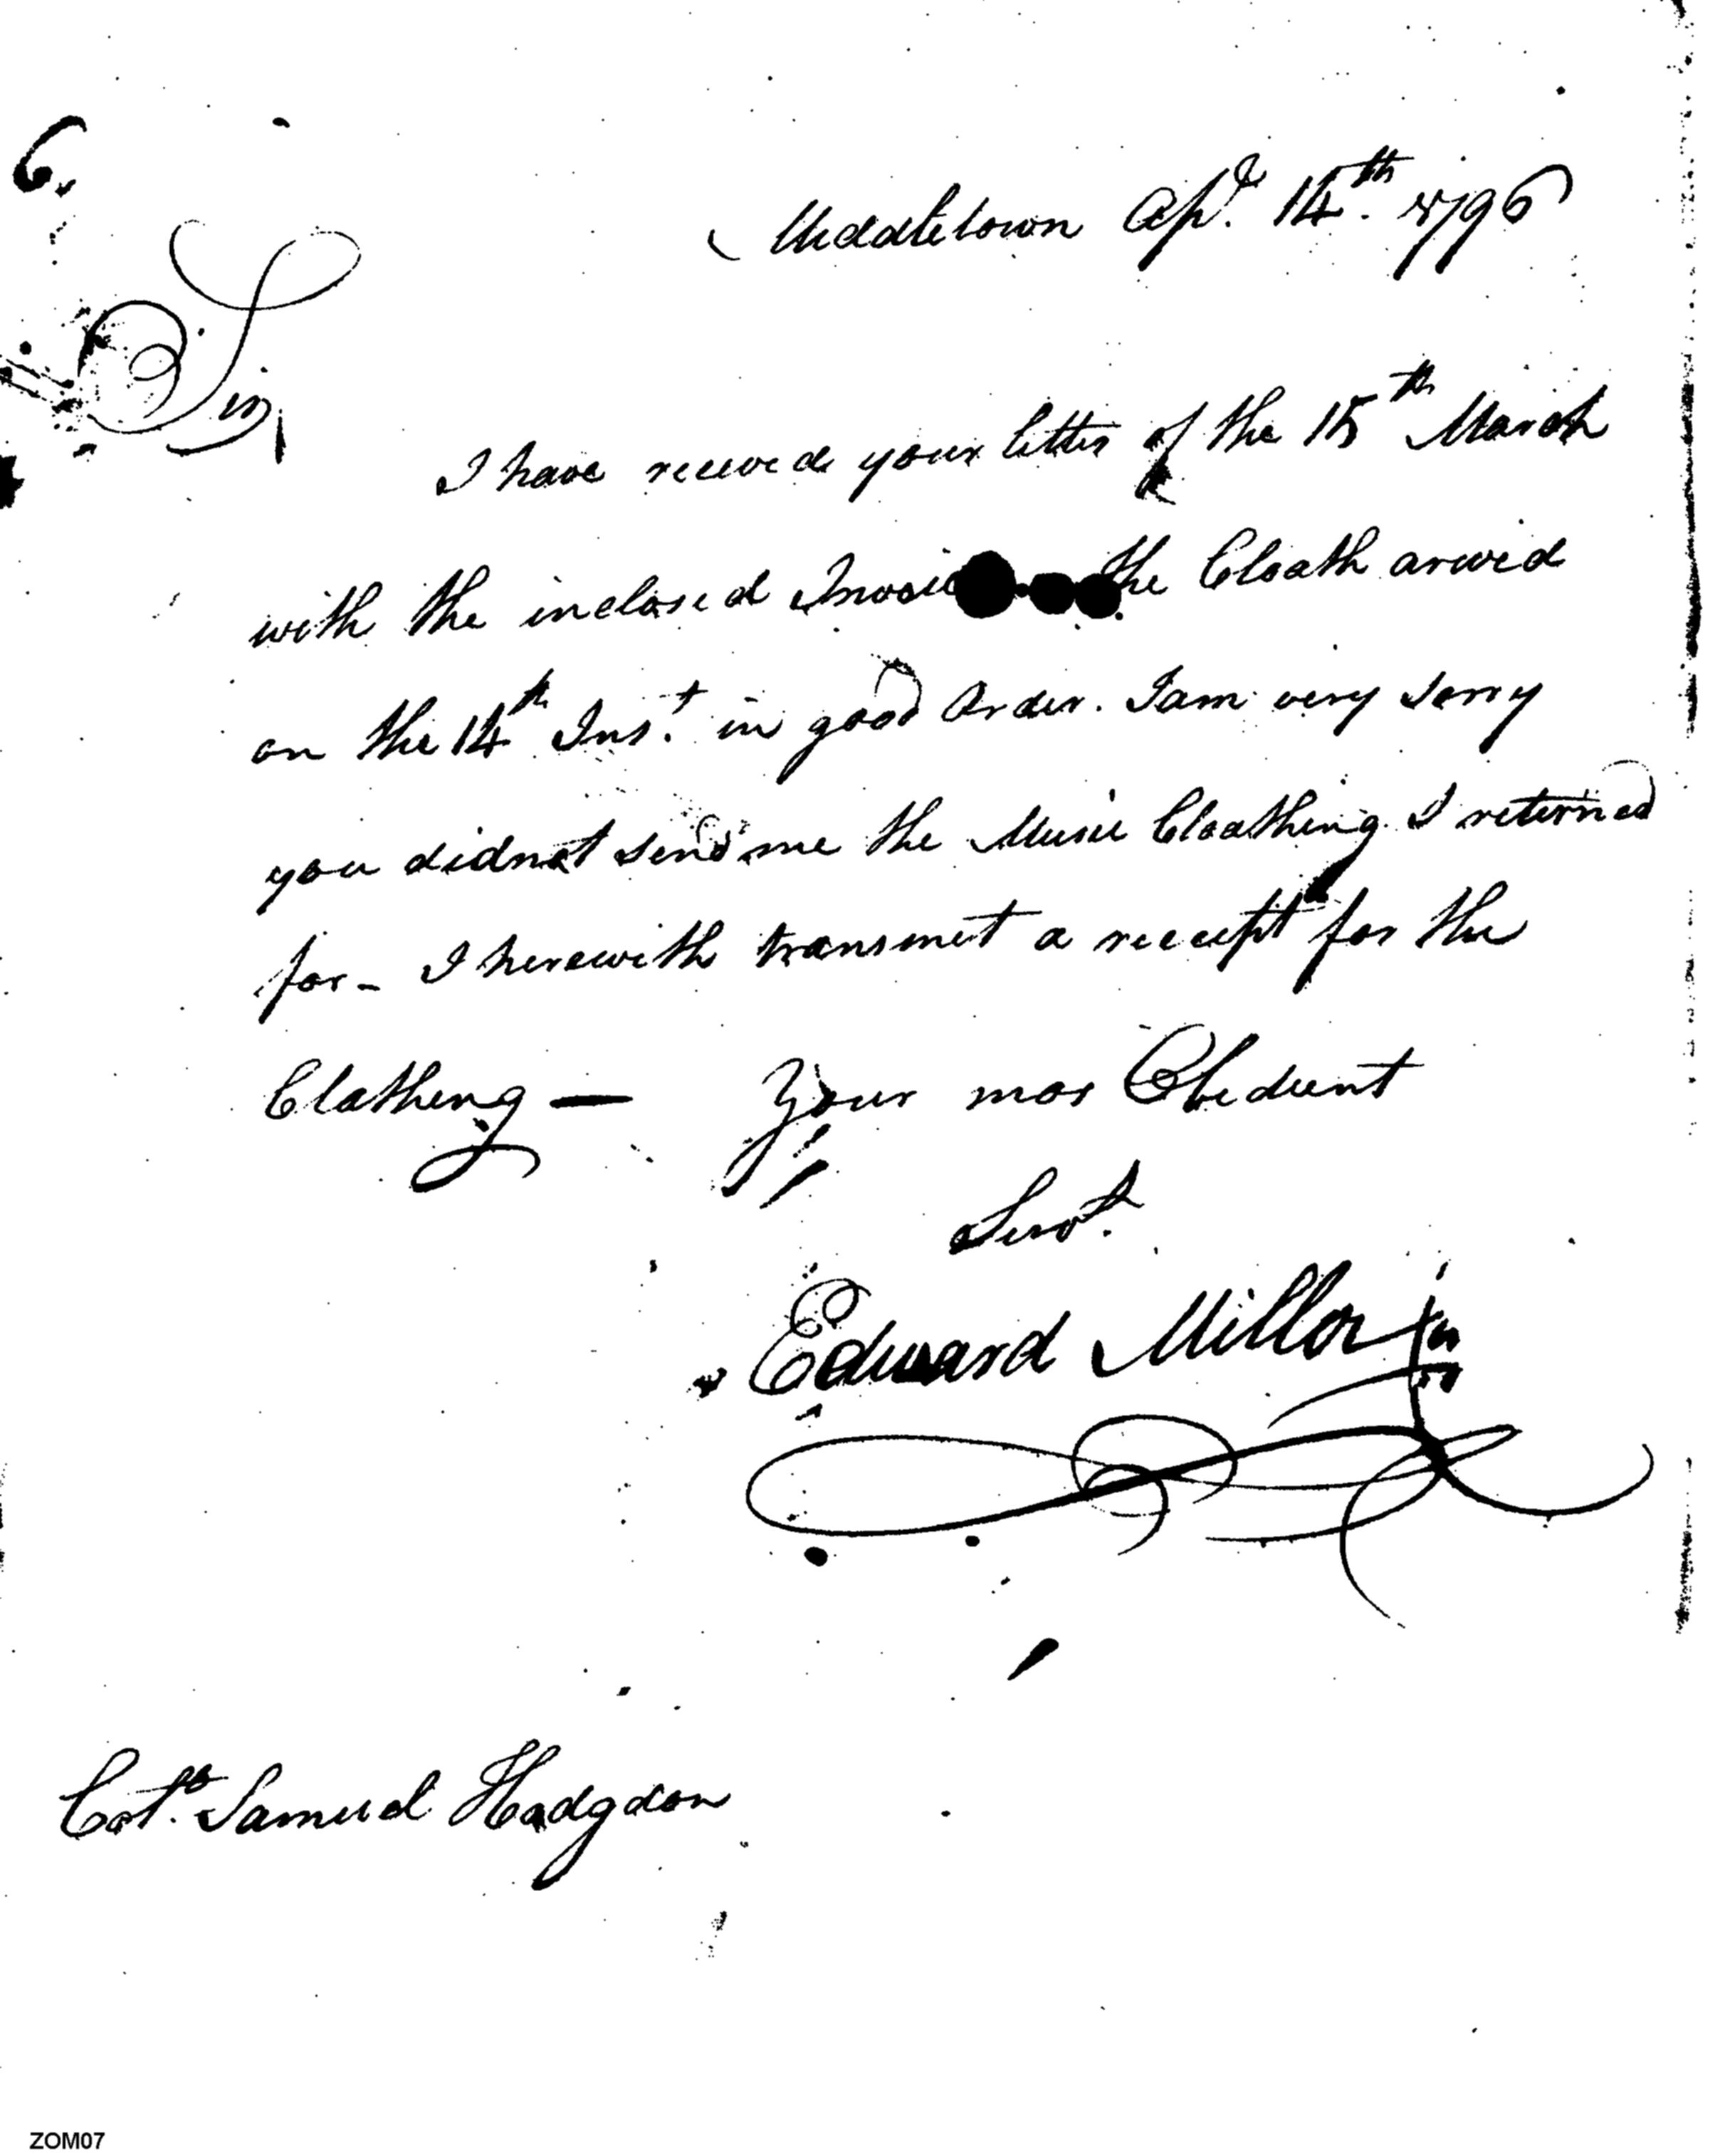 Middletown Apl. 14th. 1796
Sir,
I have received your letter of the 15th March
with the inclosed Invoice the Cloath arived
on the 14th Inst. in good Order. I am very sorry
you did not send me the Music Cloathing I returned
for - I herewith transmit a receipt for the
Clathing — Your mos Obedient
Servt.
Edward Miller jr
Col. Samuel Hodgdon
ZOM07